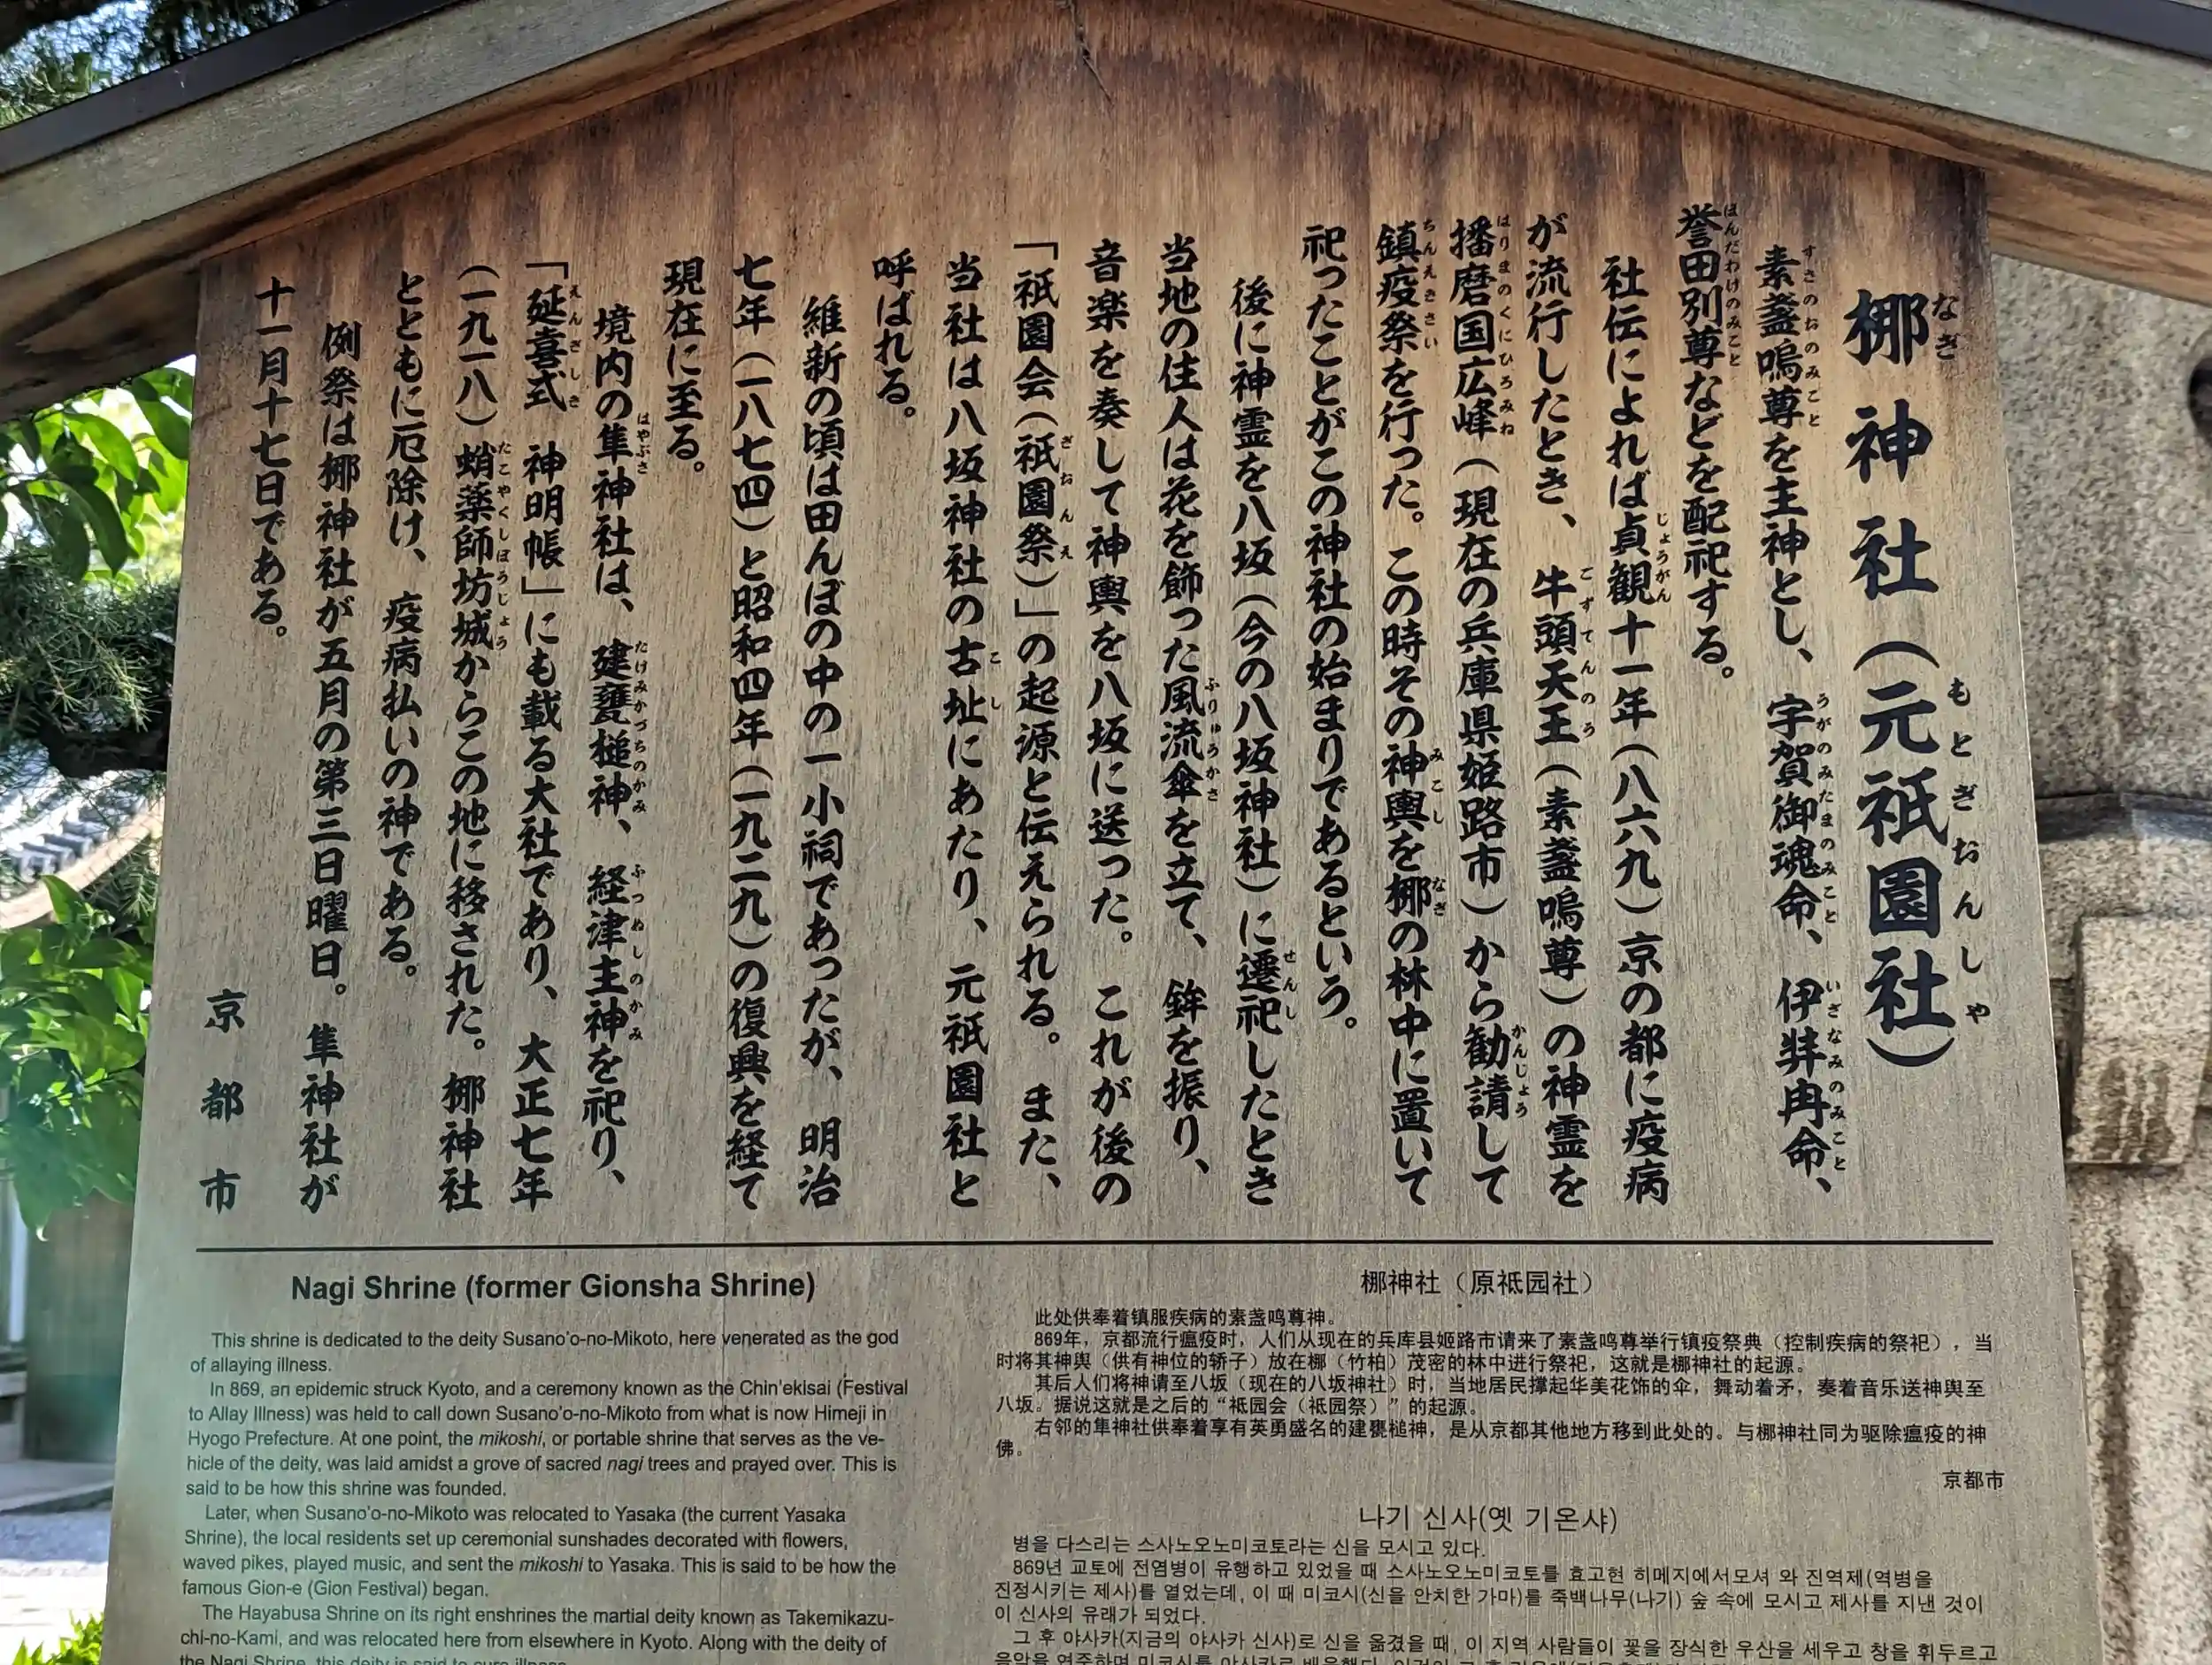 梛神社（元祇園社）
素盞嗚尊を主神とし、宇賀御魂命、伊弉冉命、
誉田別尊などを配祀する。
社伝によれば貞観十一年（八六九）京の都に疫病
が流行したとき、牛頭天王（素盞嗚尊）の神霊を
播磨国広峰（現在の兵庫県姫路市）から勧請して
鎮疫祭を行った。この時その神輿を梛の林中に置いて
祀ったことがこの神社の始まりであるという。
後に神霊を八坂（今の八坂神社）に遷祀したとき
当地の住人は花を飾った風流傘を立て、鉾を振り、
音楽を奏して神輿を八坂に送った。これが後の
「祇園会（祇園祭）」の起源と伝えられる。また、
当社は八坂神社の古址にあたり、元祇園社と
呼ばれる。
維新の頃は田んぼの中の一小祠であったが、明治
七年（一八七四）と昭和四年（一九二九）の復興を経て
現在に至る。
境内の隼神社は、建甕槌神、経津主神を祀り、
「延喜式　神明帳」にも載る大社であり、大正七年
（一九一八）蛸薬師坊城からこの地に移された。梛神社
とともに厄除け、疫病払いの神である。
例祭は梛神社が五月の第三日曜日。隼神社が
十一月十七日である。
京都市
Nagi Shrine (former Gionsha Shrine)
This shrine is dedicated to the deity Susano'o-no-Mikoto, here venerated as the god
of allaying illness.
In 869, an epidemic struck Kyoto, and a ceremony known as the Chin'ekisai (Festival
to Allay Illness) was held to call down Susano'o-no-Mikoto from what is now Himeji in
Hyogo Prefecture. At one point, the mikoshi, or portable shrine that serves as the ve-
hicle of the deity, was laid amidst a grove of sacred nagi trees and prayed over. This is
said to be how this shrine was founded.
Later, when Susano'o-no-Mikoto was relocated to Yasaka (the current Yasaka
Shrine), the local residents set up ceremonial sunshades decorated with flowers,
waved pikes, played music, and sent the mikoshi to Yasaka. This is said to be how the
famous Gion-e (Gion Festival) began.
The Hayabusa Shrine on its right enshrines the martial deity known as Takemikazu-
chi-no-Kami, and was relocated here from elsewhere in Kyoto. Along with the deity of
the Nagi Shrine, this deity is said to cure illness.
梛神社（原祗园社）
此处供奉着镇服疾病的素盏鸣尊神。
869年，京都流行瘟疫时，人们从现在的兵库县姬路市请来了素盏鸣尊举行镇疫祭典（控制疾病的祭祀），当
时将其神舆（供有神位的轿子）放在梛（竹柏）茂密的林中进行祭祀，这就是梛神社的起源。
其后人们将神请至八坂（现在的八坂神社）时，当地居民撑起华美花饰的伞，舞动着矛，奏着音乐送神舆至
八坂。据说这就是之后的“祗园会（祗园祭）”的起源。
右邻的隼神社供奉着享有英勇盛名的建甕槌神，是从京都其他地方移到此处的。与梛神社同为驱除瘟疫的神
佛。
京都市
나기 신사(옛 기온샤)
병을 다스리는 스사노오노미코토라는 신을 모시고 있다.
869년 교토에 전염병이 유행하고 있었을 때 스사노오노미코토를 효고현 히메지에서모셔 와 진역제(역병을
진정시키는 제사)를 열었는데, 이 때 미코시(신을 안치한 가마)를 죽백나무(나기) 숲 속에 모시고 제사를 지낸 것이
이 신사의 유래가 되었다.
그 후 야사카(지금의 야사카 신사)로 신을 옮겼을 때, 이 지역 사람들이 꽃을 장식한 우산을 세우고 창을 휘두르고